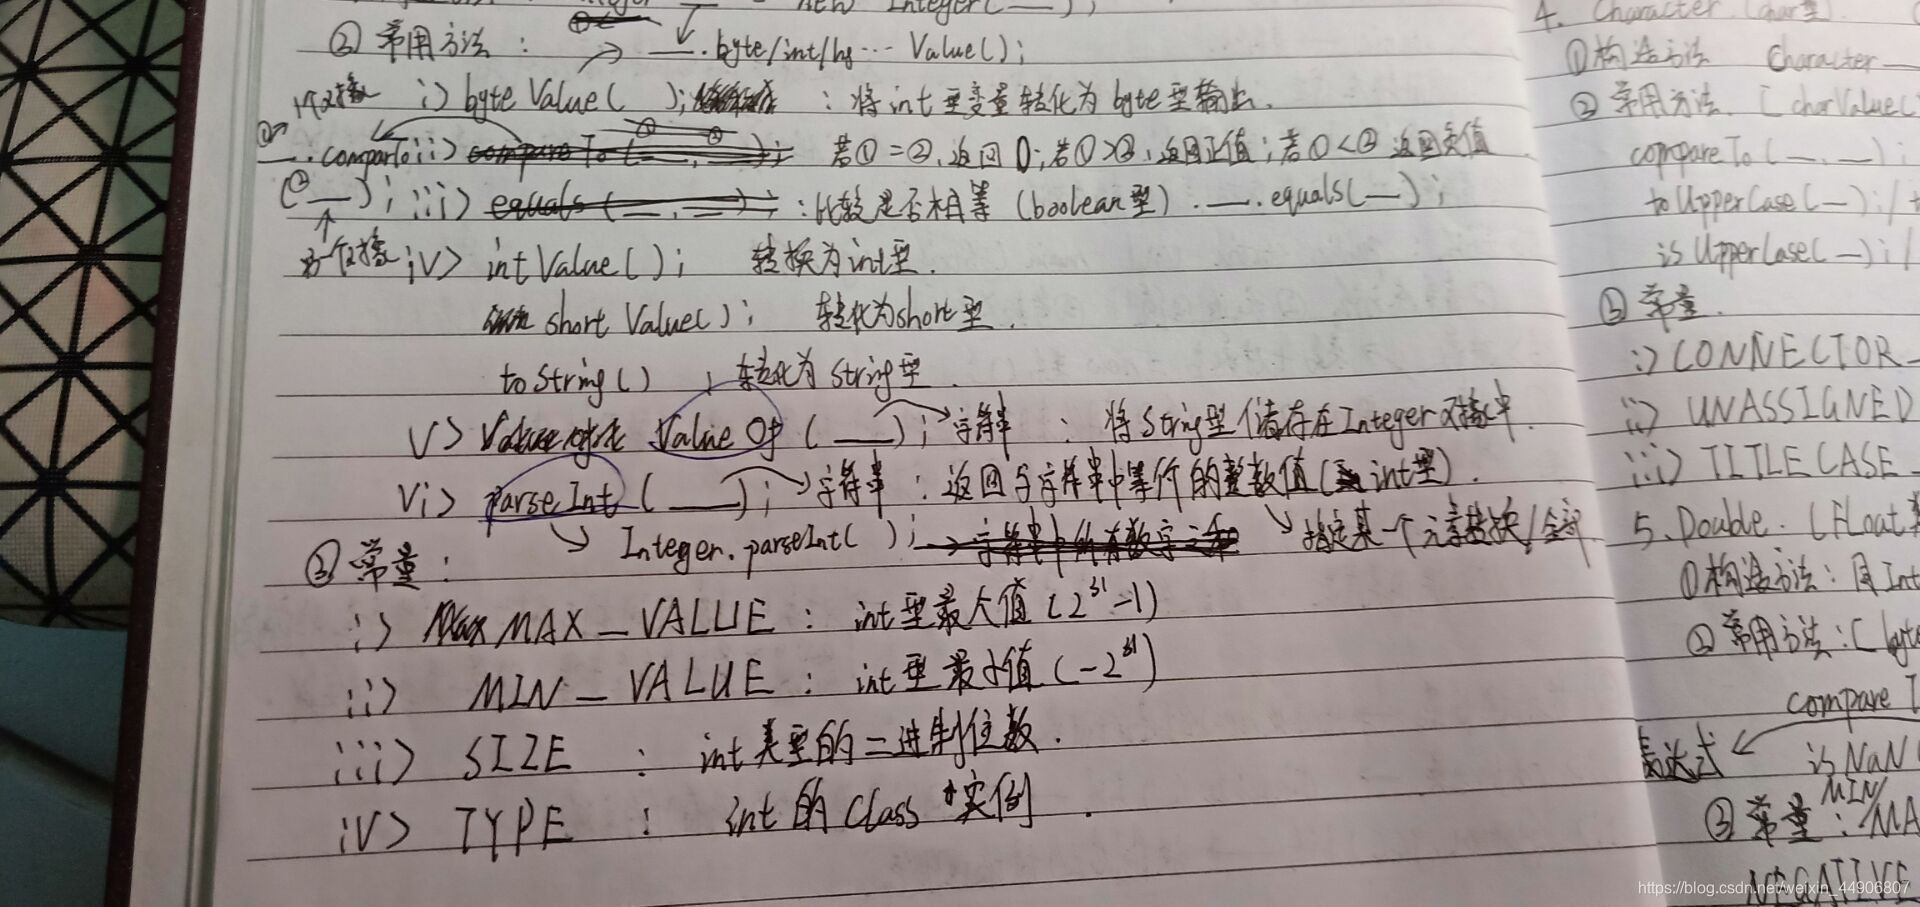 new Integer(__);
② 常用方法: __.byte/int/ … Value();
i> byteValue( ); : 将int型变量转化为byte型输出.
①
__.comparTo ii> compareTo(__,__); 若①=②,返回0;若①>②,返回正值;若①<②返回负值
(②__); iii> equals(__,__); : 比较是否相等(boolean型). __.equals(__);
另一个对象 iv> intValue(); 转换为int型.
shortValue(); 转化为short型.
toString() ; 转化为String型.
v> ValueOf(__); 字符串 : 将String型储存在Integer对象中.
vi> parseInt(__); 字符串 : 返回与字符串中等价的整数值(int型).
Integer.parseInt( ); → 字符串中所有数字之和 指定某一个元素转换/全部
③ 常量:
i> MAX_VALUE : int型最大值(2^31-1)
ii> MIN_VALUE : int型最小值(-2^31)
iii> SIZE : int类型的二进制位数.
iv> TYPE : int的Class 实例.
4. Character (char型)
①构造方法 Character__
②常用方法. [charValue(
compareTo(__,__);
toUpperCase(__);/
isUpperCase(__);/
③常量.
i> CONNECTOR_
ii> UNASSIGNED
iii> TITLECASE_
5. Double. (Float
①构造方法: 同Int
②常用方法: [byt
compare
表达式 isNaN(
MIN/
③常量: MA
NEGATIVE
https://blog.csdn.net/weixin_44906807